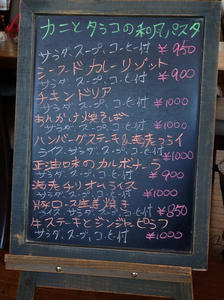 カニとタラコの和風パスタ
サラダ、スープ、コーヒー付 ¥950
シーフードカレーリゾット
サラダ、スープ、コーヒー付 ¥900
チキンドリア
サラダ、スープ、コーヒー付 ¥1000
あんかけ焼きそば
サラダ、スープ、コーヒー付 ¥1000
ハンバーグステーキ&
ライス、サラダ、スープ、コーヒー付 ¥1000
正油味のカルボナーラ
サラダ、スープ、コーヒー付 ¥900
チリオムライス
サラダ、スープ、コーヒー付 ¥1000
豚ロース生姜焼き
ライス、サラダ、スープ、コーヒー付 ¥850
牛ステーキとジンジャーピラフ
サラダ、スープ、コーヒー付 ¥1000